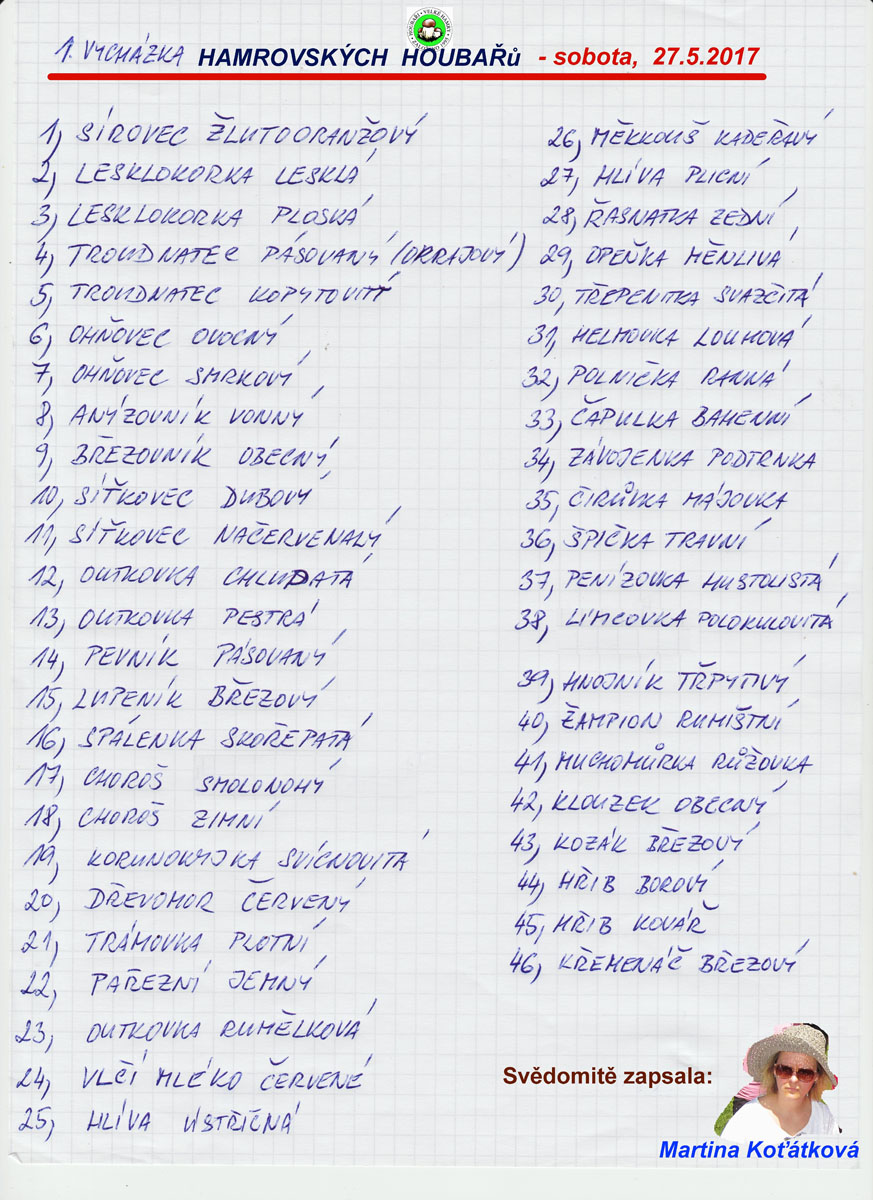 1. VYCHÁZKA HAMROVSKÝCH HOUBAŘů - sobota, 27.5.2017
1, SÍROVEC ŽLUTOORANŽOVÝ
2, LESKLOKORKA LESKLÁ
3, LESKLOKORKA PLOSKÁ
4, TROUDNATEC PÁSOVANÝ (OKRAJOVÝ)
5, TROUDNATEC KOPYTOVITÝ
6, OHŇOVEC OVOCNÝ
7, OHŇOVEC SMRKOVÝ
8, ANÝZOVNÍK VONNÝ
9, BŘEZOVNÍK OBECNÝ
10, SÍŤKOVEC DUBOVÝ
11, SÍŤKOVEC NAČERVENALÝ
12, OUTKOVKA CHLUPATÁ
13, OUTKOVKA PESTRÁ
14, PEVNÍK PÁSOVANÝ
15, LUPENÍK BŘEZOVÝ
16, SPÁLENKA SKOŘEPATÁ
17, CHOROŠ SMOLONOHÝ
18, CHOROŠ ZIMNÍ
19, KORUNOKYJKA SVÍCNOVITÁ
20, DŘEVOMOR ČERVENÝ
21, TRÁMOVKA PLOTNÍ
22, PAŘEZNÍ JEMNÝ
23, OUTKOVKA RUMĚLKOVÁ
24, VLČÍ MLÉKO ČERVENÉ
25, HLÍVA ÚSTŘIČNÁ
26, MĚKKOUŠ KADEŘAVÝ
27, HLÍVA PLICNÍ
28, ŘASNATKA ZEDNÍ
29, OPEŇKA MĚNLIVÁ
30, TŘEPENITKA SVAZČITÁ
31, HELMOVKA LOUHOVÁ
32, POLNIČKA RANNÁ
33, ČAPULKA BAHENNÍ
34, ZÁVOJENKA PODTRNKA
35, ČIRŮVKA MÁJOVKA
36, ŠPIČKA TRAVNÍ
37, PENÍZOVKA HUSTOLISTÁ
38, LÍMCOVKA POLOKULOVITÁ
39, HNOJNÍK TŘPYTIVÝ
40, ŽAMPION RUMIŠTNÍ
41, MUCHOMŮRKA RŮŽOVKA
42, KLOUZEK OBECNÝ
43, KOZÁK BŘEZOVÝ
44, HŘIB BOROVÝ
45, HŘIB KOVÁŘ
46, KŘEMENÁČ BŘEZOVÝ
Svědomitě zapsala:
Martina Koťátková